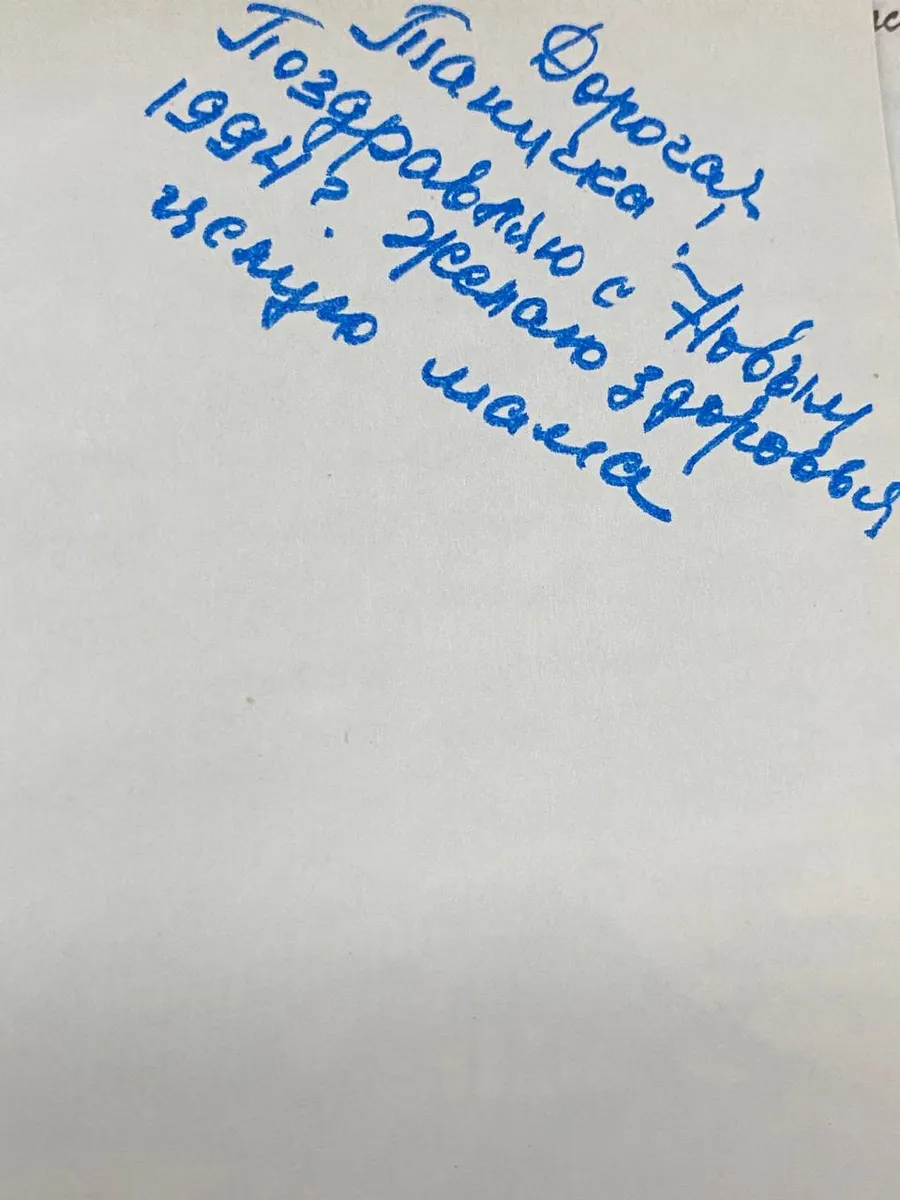 Дорогая
Таниска!
Поздравляю с Новым
1994г. Желаю здоровья
целую мама